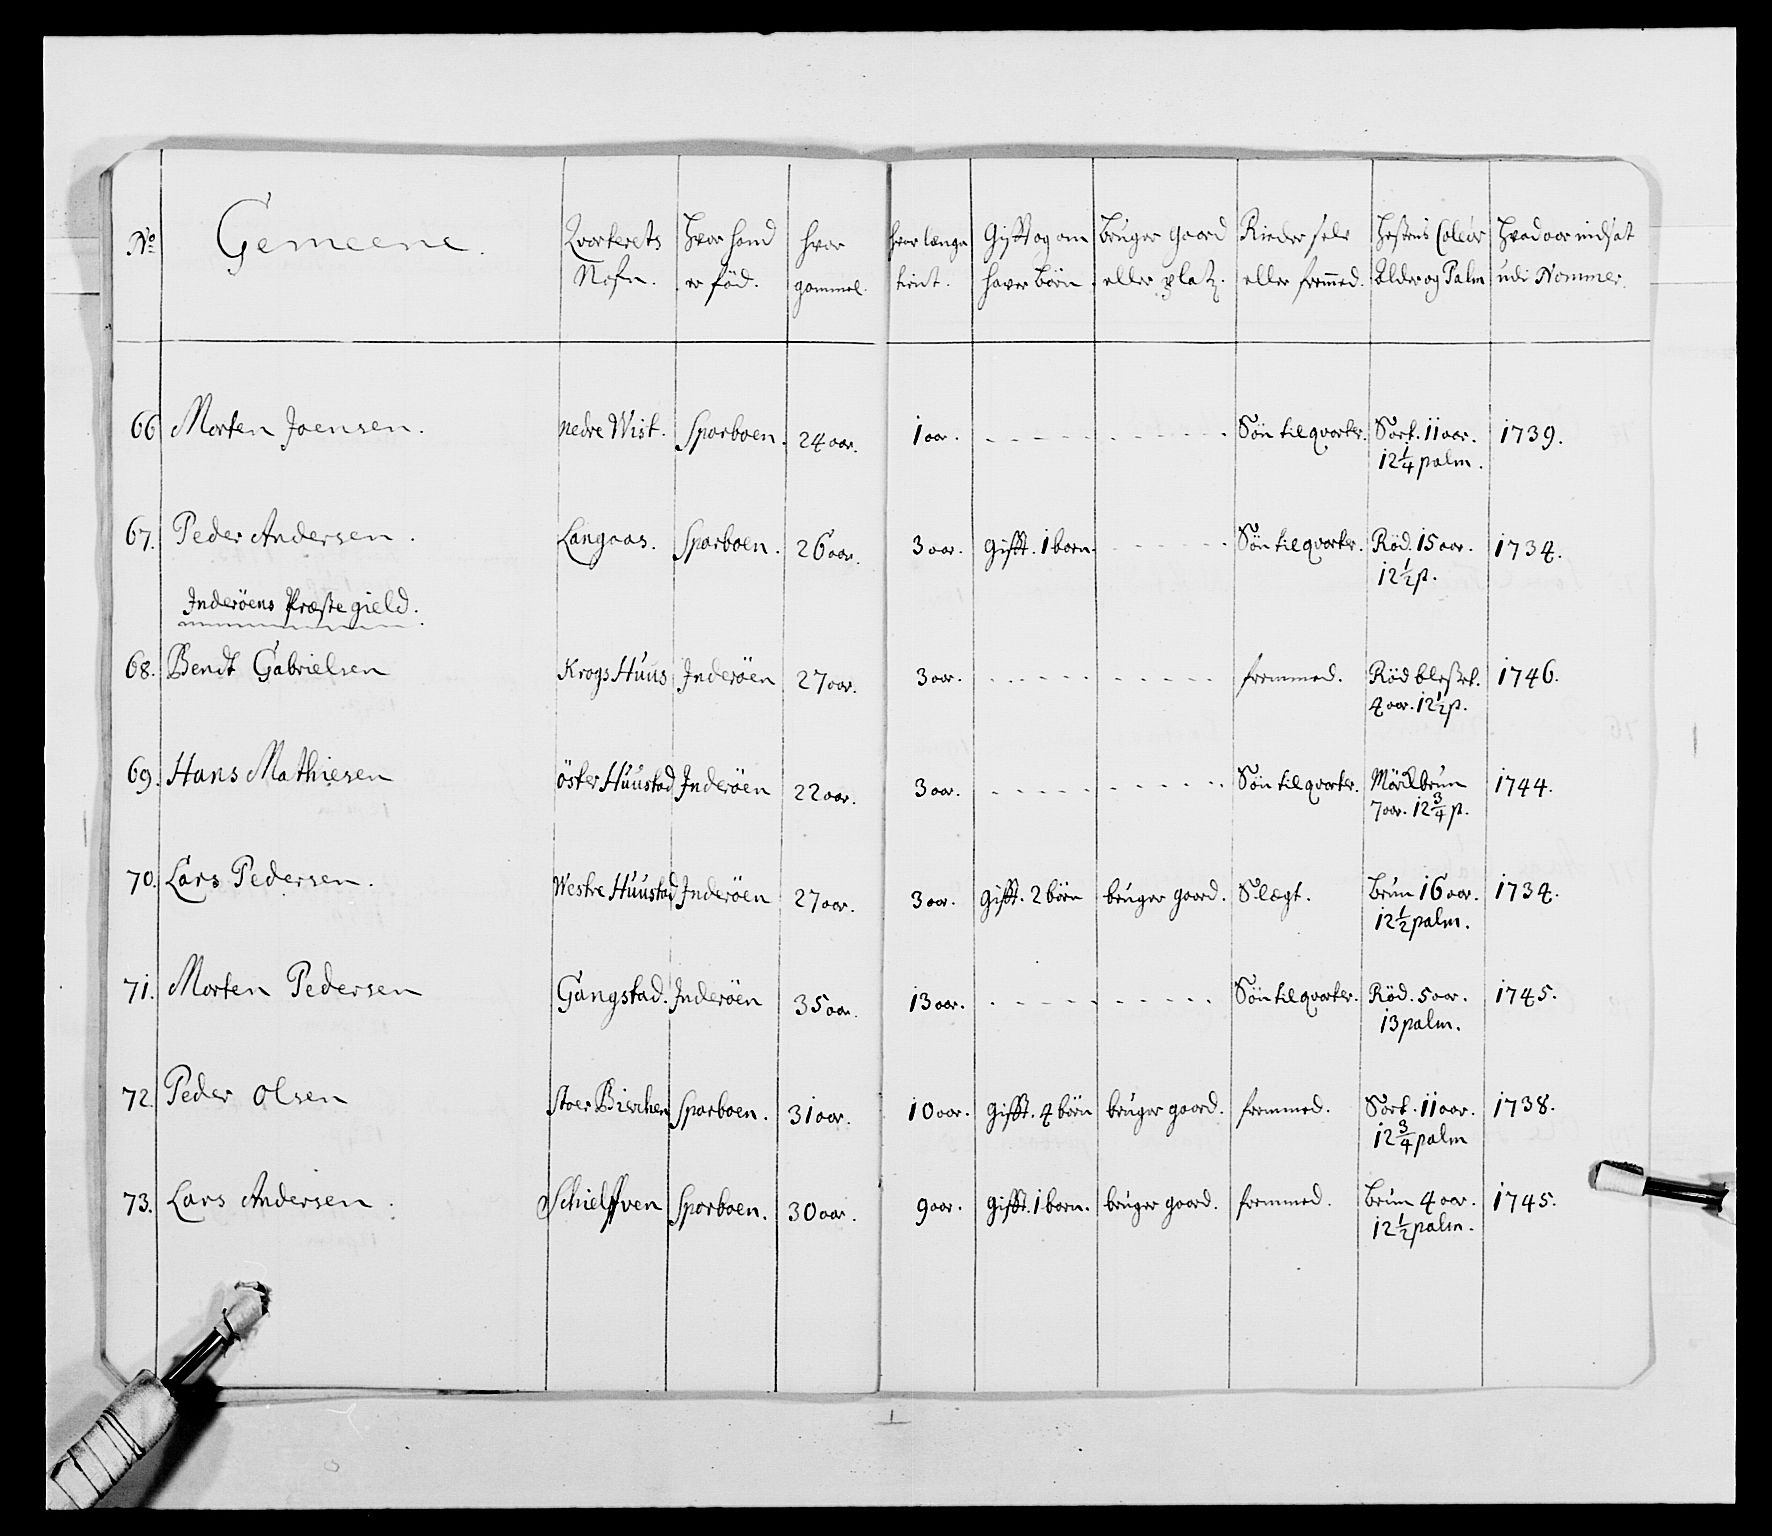 No Gemeene. Qvarterets Hvor hand hvor hvor længe Gifft og om Bruger gaard Rieder selv Hestens Coleur Hvad aar indsat
Nafn. er fød. gammel. tient. haver børn. eller platz. eller fremmed. Alder og Palm udi Nommer.
66 Morten Joensen. nedre Wist. Sparboen. 24 aar. 1 aar. Søn til qvarter. Sort. 11 aar. 1739.
12 1/4 palm.
67. Peder Andersen. Langaas. Sparboen. 26 aar. 3 aar. Gifft. 1 barn. Søn til qvarter. Rød. 15 aar. 1734.
12 1/2 p.
Inderöens Præstegield.
68. Bendt Gabrielsen Krogs Huus Inderöen 27 aar. 3 aar. fremmed. Rød blesset. 1746.
4 aar. 12 1/2 p.
69. Hans Mathiesen öster Huustad Inderöen 22 aar. 3 aar. Søn til qvarter. Mörckbrun 1744.
7 aar. 12 3/4 p.
70. Lars Pedersen. Westre Huustad Inderöen 27 aar. 3 aar. Gifft. 2 börn bruger gaard. Slægt. brun 16 aar. 1734.
12 1/2 palm.
71. Morten Pedersen Gangstad. Inderöen 35 aar. 13 aar. Søn til qvarter. Rød. 5 aar. 1745.
13 palm.
72. Peder Olsen Stoer Birchen Sparboen. 31 aar. 10 aar. Gifft. 4 börn bruger gaard. fremmed. Sort. 11 aar. 1738.
12 3/4 palm
73. Lars Andersen. Schielffven Sparboen. 30 aar. 9 aar. Gifft. 1 barn. bruger gaard. fremmed. brun 4 aar. 1745.
12 1/2 palm.